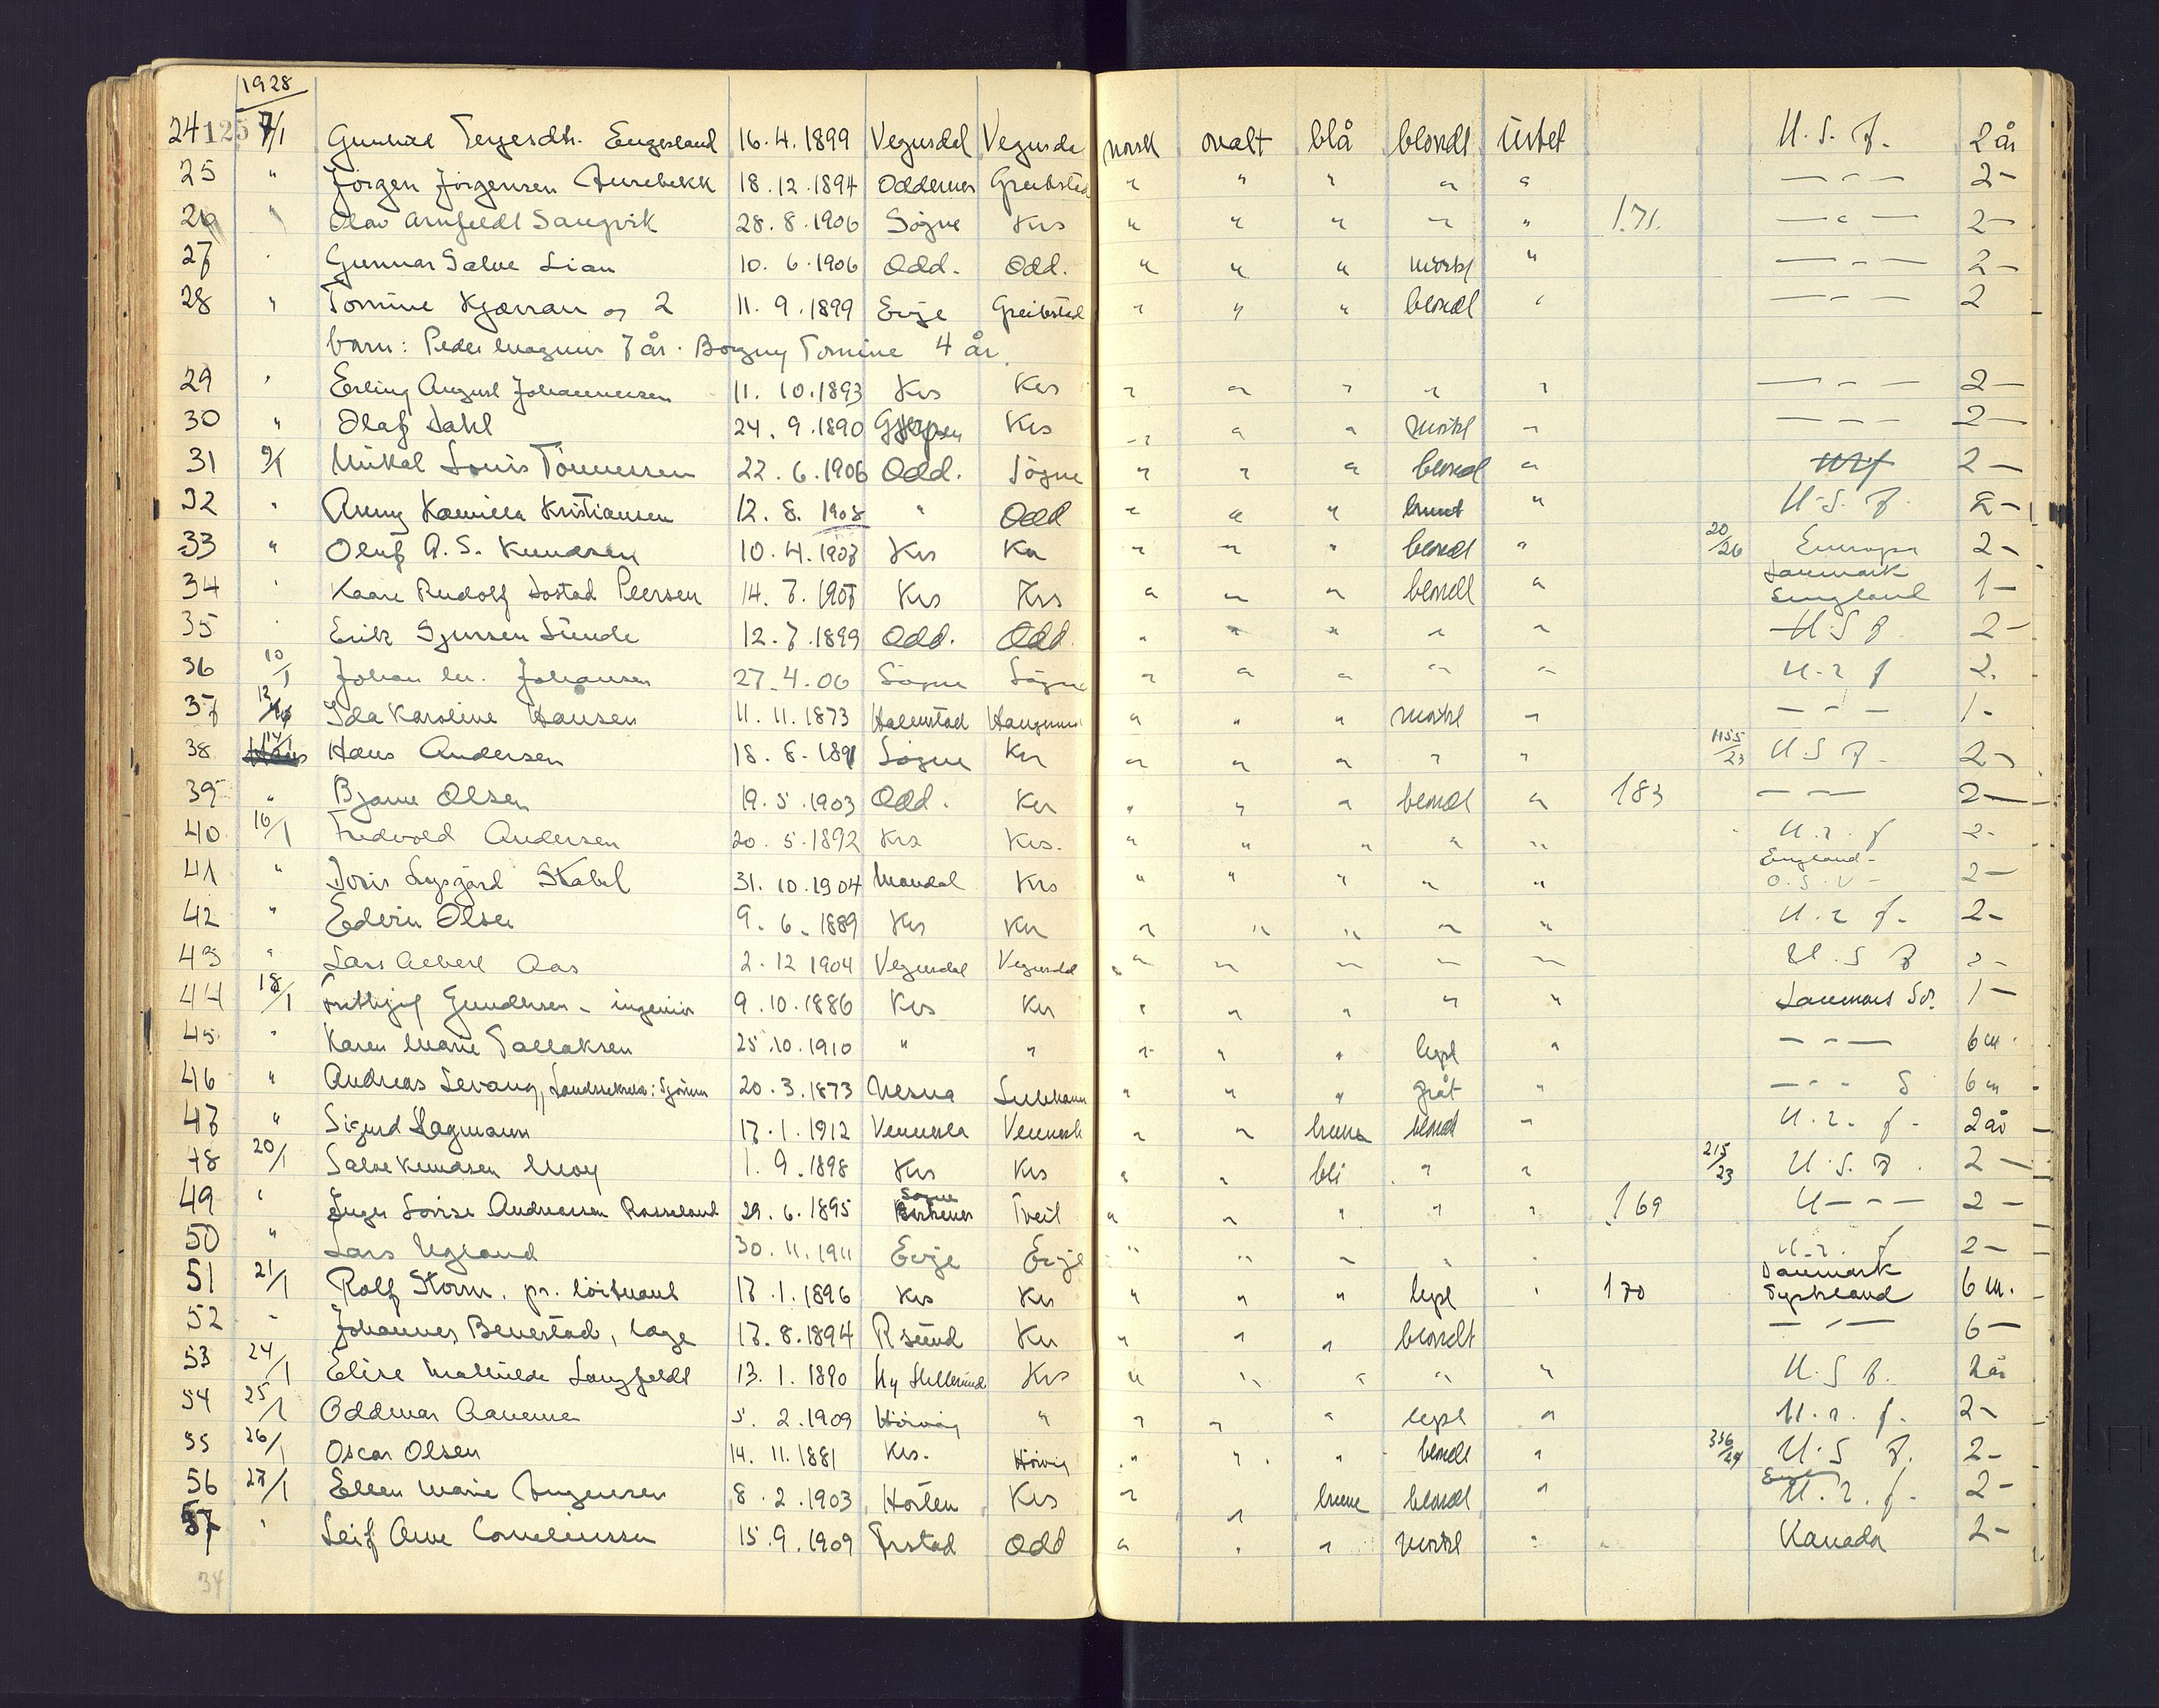 1928
24 125 7/1 Gunhild Terjesdtr. Eugesland 16.4.1899 Vegusdal Vegusda norsk ovalt blå blondt intet U.S.F. 2 år
25 " Jörgen Jörgensen Aurebekk 18.12.1894 Oddernes Greibsta " " " " " — " — 2 -
26 " Olav Arnfeldt Sangvik 28.8.1906 Sögne Krs " " " " " 171. — " — 2 -
27 " Gunnar Salve Lian 10.6.1906 Odd. Odd. " " " mörkt " — " — 2 -
28 " Tomine Kjærran og 2 11.9.1899 Evje Greibstad " " " blondt " — " — 2
barn: Peder Magnus 7 år. Borgny Tomine 4 år.
29 " Erling August Johannessen 11.10.1893 Krs Krs " " " " " — " — 2 -
30 " Olaf Dahl 24.9.1890 Gjerpen Krs " " " mörkt " — " — 2 -
31 9/1 Mikal Louis Tönnessen 22.6.1906 Odd. Sögne " " " blond " 2 -
32 " Anny Kamilla Kristiansen 12.8.1908 " Odd " " " brunt " U.S.F. 2 -
33 " Oluf A.S. Knudsen 10.4.1907 Krs Kr " " " blond " 20/26 Europa 2 -
34 " Kaare Rudolf Dostad Peersen 14.7.1905 Krs Krs " " " blondt " Danmark England 1 -
35 " Erik Syvertsen Sünde 12.7.1899 Odd. Odd. " " " " " U.S.F. 2 -
36 10/1 Johan M. Johansen 27.4.06 Sögne Sögne " " " " " U.S.F. 2.
37 13/1 Ida Karoline Hansen 11.11.1873 Halmstad " " " mörkt " — " — 1 -
38 14/1 Hans Andersen 18.8.1891 Sögne Kr " " " " " 1155/23 U.S.F. 2 -
39 " Bjarne Olsen 19.5.1903 Odd. Kr " " " blondt " 183 — " — 2 -
40 16/1 Fredvold Andersen 20.5.1892 Krs Krs. " " " " " U.S.F. 2 -
41 " Doris Lysgård Stabel 31.10.1904 Mandal Krs " " " " " England - O.S.V - 2 -
42 " Edvin Olsen 9.6.1889 Krs Kr " " " " " U.S.F. 2 -
43 " Lars Aebert Aas 2.12.1904 Vegusdal Vegusdal " " " " " U.S.F. 2 -
44 18/1 Fritthjof Gundersen - ingeniør 9.10.1886 Krs Kr " " " " " Danmark Sv. 1 -
45 " Karen Marie Tallaksen 25.10.1910 " " " " " lyst " — " — 6 m.
46 " Andreas Sevang, 20.3.1873 Nesna " " " gråt " — " — S 6 m
47 " Sigurd Hagmann 17.1.1912 Vennesla Vennesla " " brune blondt " U.S.F. 2 år
48 20/1 Salve Knudsen Moy 1.9.1898 Krs Krs " " blå " " 215/23 U.S.F. 2 -
49 " Inger Lovise Andreassen Rosseland 29.6.1895 Sögne Tveit " " " " " 169 U — " — 2 -
50 " Lars Ugland 30.11.1911 Evje Evje " " " " " U.S.F. 2 -
51 21/1 Rolf Storm, pr. löitnant 17.1.1896 Krs Kr " " " lyst " 170 Danmark Tyskland 6 m.
52 " Johannes Benestad, læge 17.8.1894 R sünd Kr " " " blondt — " — 6 -
53 24/1 Elise Mathilde Langfeldt 13.1.1890 Ny Hellesund Krs " " " " " U.S.F. 2 år
54 25/1 Oddmar Aanensen 5.2.1909 Hövåg " " " " lyst " U.S.F. 2 -
55 26/1 Oscar Olsen 14.11.1881 Krs. Hövåg " " " blondt " 336/24 U.S.F. 2 -
56 27/1 Ellen Marie Jngensen 8.2.1903 Horten Krs " " brune blondt " Engl U.S.F. 2 -
57 " Leif Arne Corneliussen 15.9.1909 Odd " " " mörkt " Kanada 2 -
34